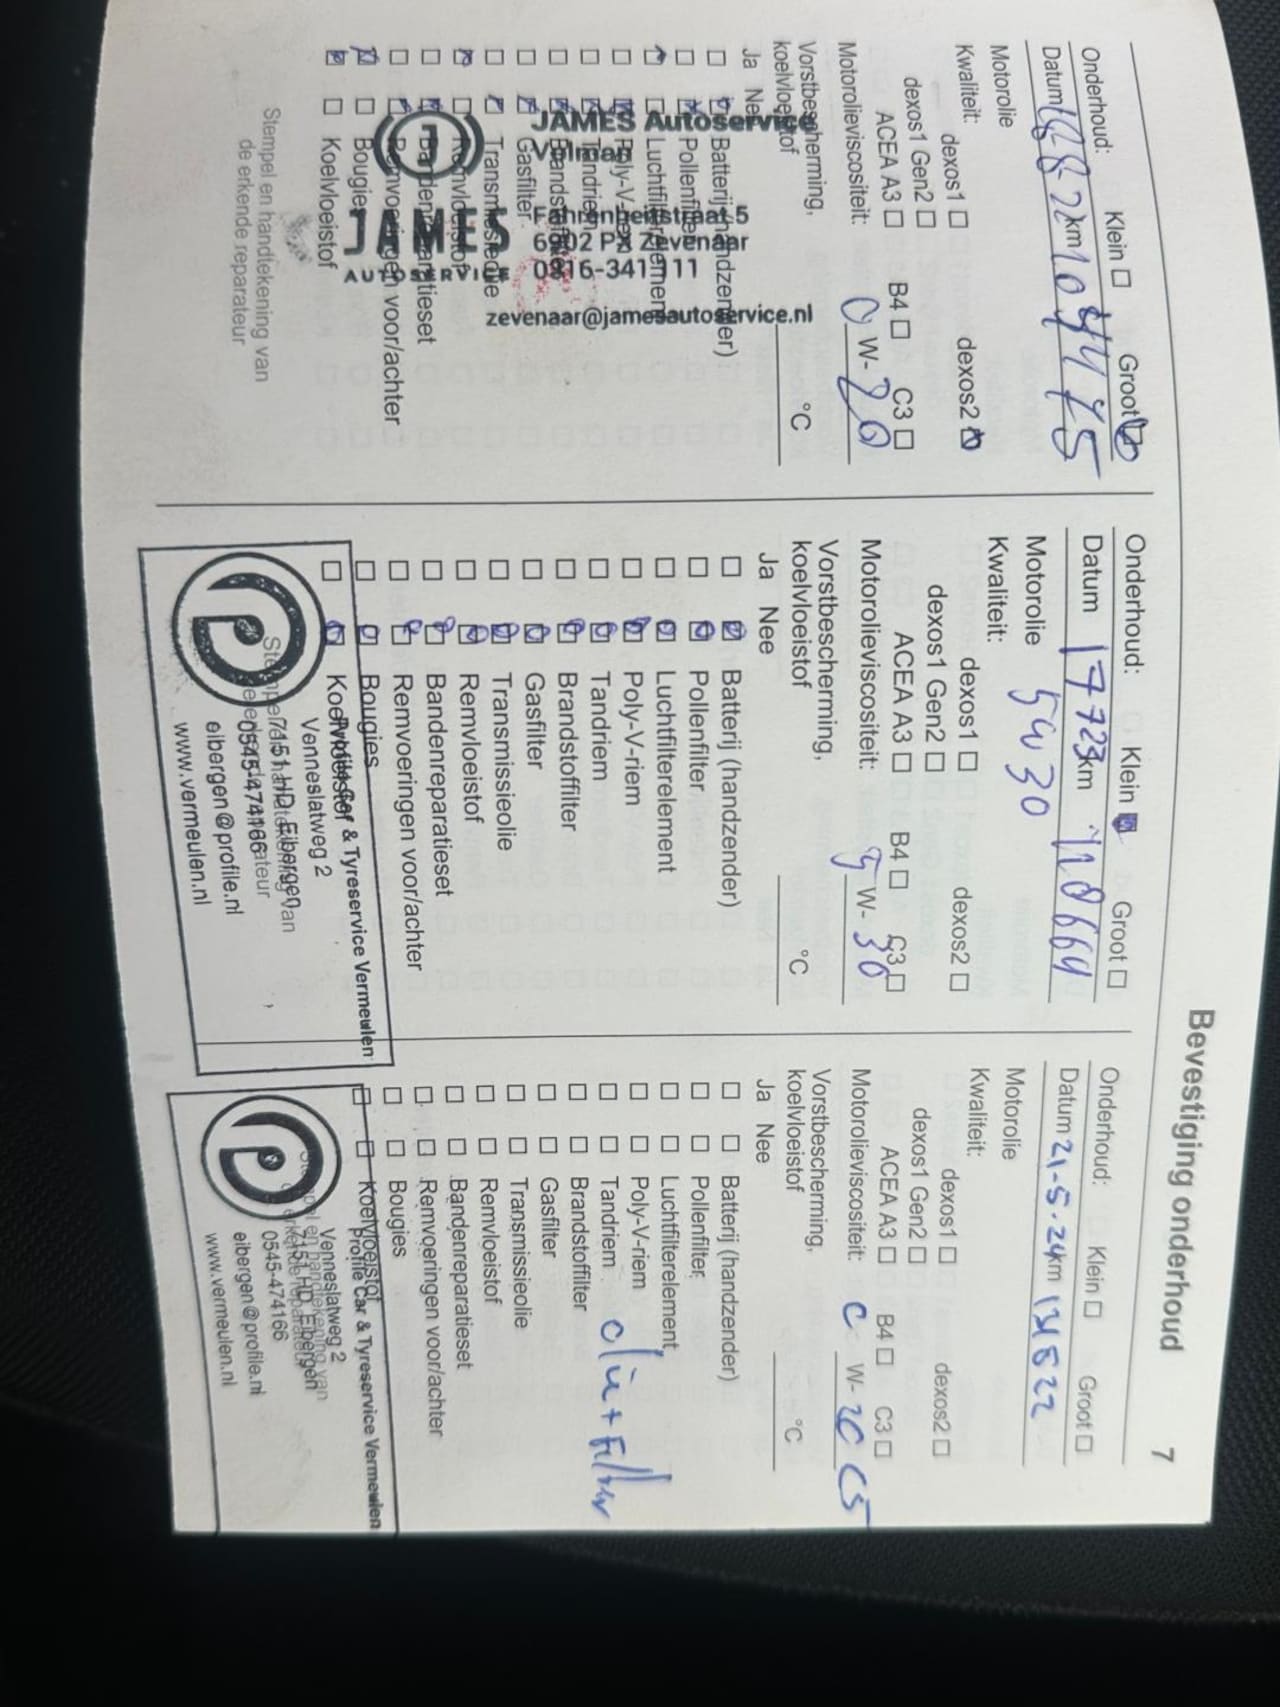 Bevestiging onderhoud 7
Onderhoud: Klein Groot
km
Motorolie
Kwaliteit: dexos1 dexos2
dexos1 Gen2
ACEA A3 B4 C3
Motorolieviscositeit: 0 W-20
Vorstbescherming,
koelvloeistof °C
Ja Nee
Batterij (handzender)
Pollenfilter
Luchtfilterelement
Poly-V-riem
Tandriem
Brandstoffilter
Gasfilter
Transmissieolie
Remvloeistof
Bandenreparatieset
Remvoeringen voor/achter
Bougies
Koelvloeistof
Stempel en handtekening van
de erkende reparateur
JAMES Autoservice
Velman
Fahrenheitstraat 5
6902 PX Zevenaar
0316-341111
zevenaar@jamesautoservice.nl
JAMES
AUTOSERVICE
Onderhoud: Klein Groot
Datum 17723 km 118664
Motorolie 5W30
Kwaliteit:
dexos1 dexos2
dexos1 Gen2
ACEA A3 B4 C3
Motorolieviscositeit: 5 W-30
Vorstbescherming,
koelvloeistof °C
Ja Nee
Batterij (handzender)
Pollenfilter
Luchtfilterelement
Poly-V-riem
Tandriem
Brandstoffilter
Gasfilter
Transmissieolie
Remvloeistof
Bandenreparatieset
Remvoeringen voor/achter
Bougies
Koelvloeistof
Profile Car & Tyreservice Vermeulen
Venneslatweg 2
7151 HD Eibergen
0545-474166
eibergen@profile.nl
www.vermeulen.nl
Onderhoud: Klein Groot
Datum 21.5.24 km 131822
Motorolie
Kwaliteit: dexos1 dexos2
dexos1 Gen2
ACEA A3 B4 C3
Motorolieviscositeit: 0 W-20 C5
Vorstbescherming,
koelvloeistof °C
Ja Nee
Batterij (handzender)
Pollenfilter
Luchtfilterelement
Poly-V-riem
Tandriem olie + Filter
Brandstoffilter
Gasfilter
Transmissieolie
Remvloeistof
Bandenreparatieset
Remvoeringen voor/achter
Bougies
Koelvloeistof
Profile Car & Tyreservice Vermeulen
Venneslatweg 2
7151 HD Eibergen
0545-474166
eibergen@profile.nl
www.vermeulen.nl